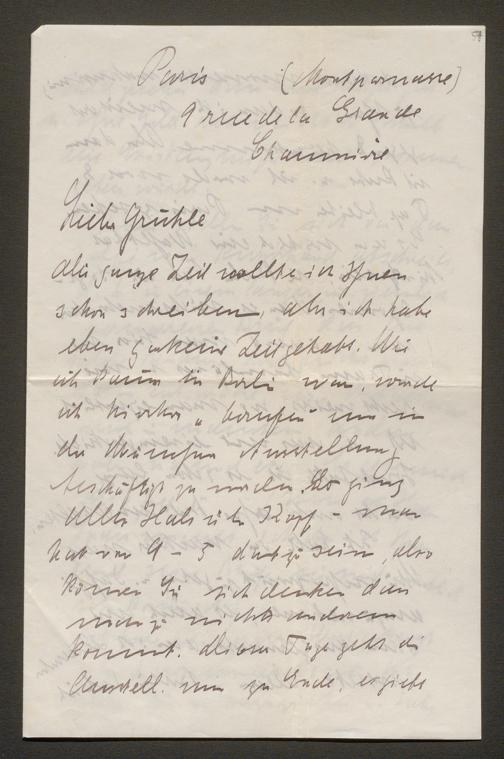 Paris (Montparnasse)
9 rue de la Grande
Chaumière
Lieber Gruhle
die ganze Zeit wollte ich Ihnen
schon schreiben, aber ich habe
eben gar keine Zeit gehabt. Wie
ich kaum in Berlin war, wurde
ich hierher „berufen" um in
der Münchner Ausstellung
beschäftigt zu werden. Da ging
Alles Hals über Kopf – man
hat von 9 – 5 dort zu sein, also
können Sie sich denken dass
man zu nichts anderem
kommt. Dieser Tage geht die
Ausstell. nun zu Ende, es giebt